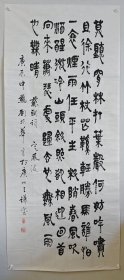 莫聽穿林打葉聲何妨吟嘯
且徐行竹杖芒鞋輕勝馬誰怕
一蓑煙雨任平生料峭春風吹
酒醒微冷山頭斜照却相迎回首
向來蕭瑟處歸去也無風雨
也無晴 蘇軾詞 定風波
庚寅中秋